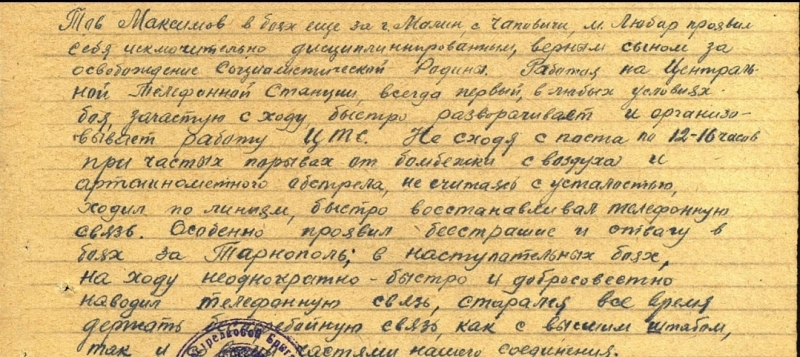 Тов Максимов в боях еще за г. Малин, с. Чаповичи, м. Любар проявил
себя исключительно дисциплинированным, верным сыном за
освобождение Социалистической Родины. Работая на Централь-
ной Телефонной Станции, всегда первый, в любых условиях
боя, зачастую с ходу, быстро разворачивает и организо-
вывает работу ЦТС. Не сходя с поста по 12-16 часов
при частых порывах от бомбежки с воздуха и
артминометного обстрела, не считаясь с усталостью,
ходил по линиям, быстро восстанавливал телефонную
связь. Особенно проявил бесстрашие и отвагу в
боях за Тарнополь; в наступательных боях,
на ходу неоднократно - быстро и добросовестно
наводил телефонную связь, старался все время
держать связь, как с высшим штабом,
так и частями нашего соединения.